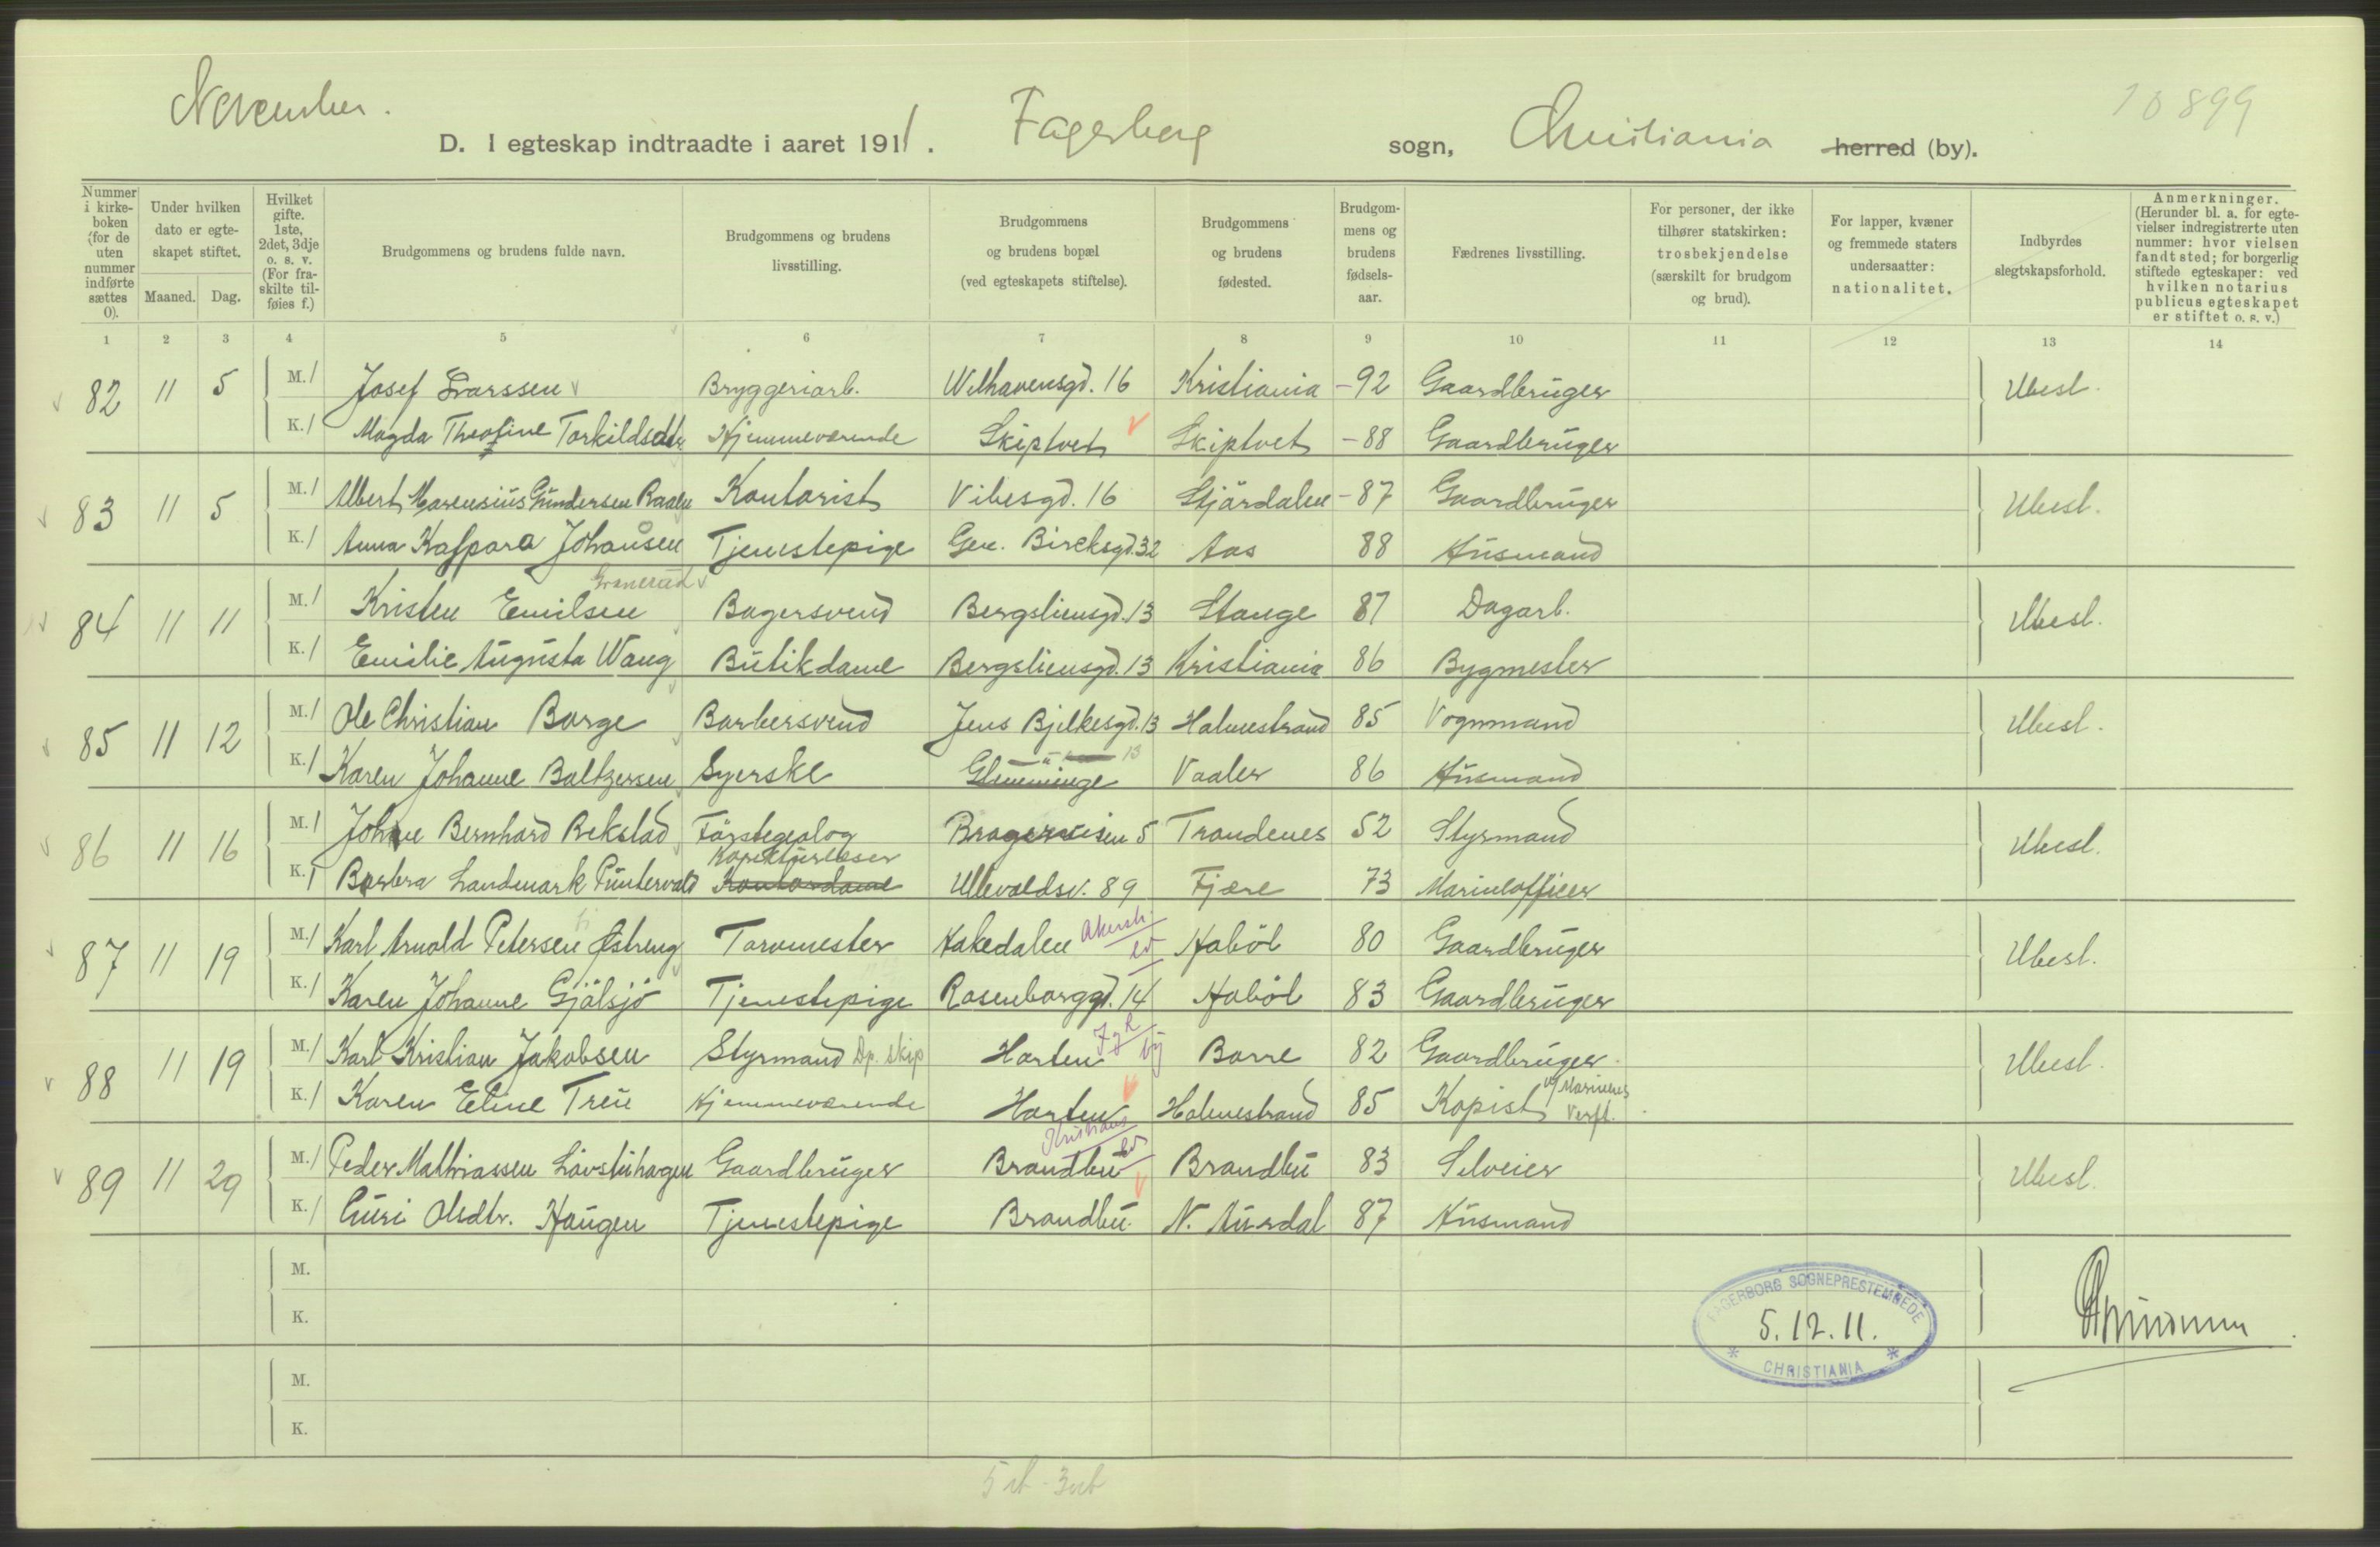 November.
10899
D. I egteskap indtraadte i aaret 1911. Fagerborg sogn, Christiania herred (by).
Nummer i kirke-boken (for de uten nummer indførte sættes 0).
Under hvilken dato er egte-skapet stiftet.
Maaned. Dag.
Hvilket gifte. 1ste, 2det, 3dje o. s. v. (For fra-skilte til-føies f.)
Brudgommens og brudens fulde navn.
Brudgommens og brudens livsstilling.
Brudgommens og brudens bopæl (ved egteskapets stiftelse).
Brudgommens og brudens fødested.
Brudgom-mens og brudens fødsels-aar.
Fædrenes livsstilling.
For personer, der ikke tilhører statskirken: trosbekjendelse (særskilt for brudgom og brud).
For lapper, kvæner og fremmede staters undersaatter: nationalitet.
Indbyrdes slegtskapsforhold.
Anmerkninger. (Herunder bl. a. for egte-vielser indregistrerte uten nummer: hvor vielsen fandt sted; for borgerlig stiftede egteskaper: ved hvilken notarius publicus egteskapet er stiftet o. s. v.)
1 2 3 4 5 6 7 8 9 10 11 12 13 14
82 11 5 M. 1 Josef Larssen Bryggeriarb. Welhavensgd. 16 Kristiania -92 Gaardbruger Ubesl.
K. 1 Magda Theofine Torkildsdtr Hjemmeværende Skiptvet Skiptvet -88 Gaardbruger
83 11 5 M. 1 Albert Marensius Gundersen Raaen Kontorist Vibesgd. 16 Stjärdalen -87 Gaardbruger Ubesl.
K. 1 Anna Kaspara Johansen Tjenestepige Gen. Bircksgd. 32 Aas 88 Husmand
Granerud
84 11 11 M. 1 Kristen Emilsen Bagersvend Bergsliensgd. 13 Stange 87 Dagarb. Ubesl.
K. 1 Emilie Augusta Wang Butikdame Bergsliensgd. 13 Kristiania 86 Bygmester
85 11 12 M. 1 Ole Christian Borge Barbersvend Jens Bjelkesgd. 13 Holmestrand 85 Vognmand Ubesl.
K. 1 Karen Johanne Baltzersen Syerske Glemminge " 13 Vaaler 86 Husmand
86 11 16 M. 1 Johan Bernhard Rekstad Förstegeolog Brageveien 5 Trondenes 52 Styrmand Ubesl.
Korrekturleser
K. 1 Barbra Landmark Puntervold Kontordame Ullevoldsv. 89 Fjære 73 Marineofficer
87 11 19 M. 1 Karl Arnold Petersen Østreng Torvmester Hakedalen Akersh. Haböl 80 Gaardbruger Ubesl.
K. 1 Karen Johanne Gjölsjö Tjenestepige Rosenborggd. 14 Haböl 83 Gaardbruger
88 11 19 M. 1 Karl Kristian Jakobsen Styrmand Dp. skip Horten Borre 82 Gaardbruger Ubesl.
K. 1 Karen Eline Treu Hjemmeværende Horten Holmestrand 85 Kopist v/ Marinens Verft.
89 11 29 M. 1 Peder Mathiassen Lövstuhagen Gaardbruger Brandbu Kristians Brandbu 83 Selveier Ubesl.
K. 1 Guri Olsdtr. Haugen Tjenestepige Brandbu N. Aurdal 87 Husmand
M.
K.
FAGERBORG SOGNEPRESTEMBEDE
5.12.11.
* CHRISTIANIA *
M.
K.